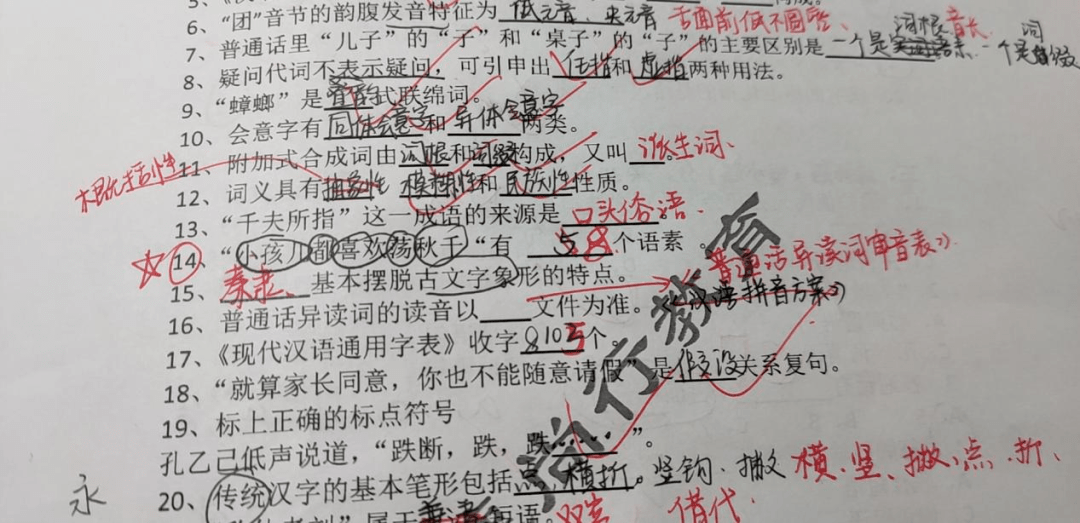 6、“团”音节的韵腹发音特征为 低元音、央元音 舌面前低不圆唇、
7、普通话里“儿子”的“子”和“桌子”的“子”的主要区别是一个是 词根 一个是 词
8、疑问代词不表示疑问，可引申出 任指 和 虚指 两种用法。
9、“蟑螂”是 叠韵 式联绵词。
10、会意字有 同体会意字 和 异体会意字 两类。
11、附加式合成词由 词根 和 词缀 构成，又叫 派生词.
概括性
12、词义具有 抽象性 模糊性 和 民族性 性质。
13、“千夫所指”这一成语的来源是 口头俗语.
14、“小孩儿都喜欢荡秋千“有 5 8 个语素
15、 秦隶、 基本摆脱古文字象形的特点。
《普通话异读词审音表》
16、普通话异读词的读音以____文件为准。《汉语拼音方案》
17、《现代汉语通用字表》收字 8105 个。
18、“就算家长同意，你也不能随意请假”是 假设 关系复句。
19、标上正确的标点符号
孔乙己低声说道，“跌断，跌，跌……”。
20、传统汉字的基本笔形包括 点 横折。竖钩、撇 横、竖、撇、点、折、
永
属于 短语。 借代.
试行教育